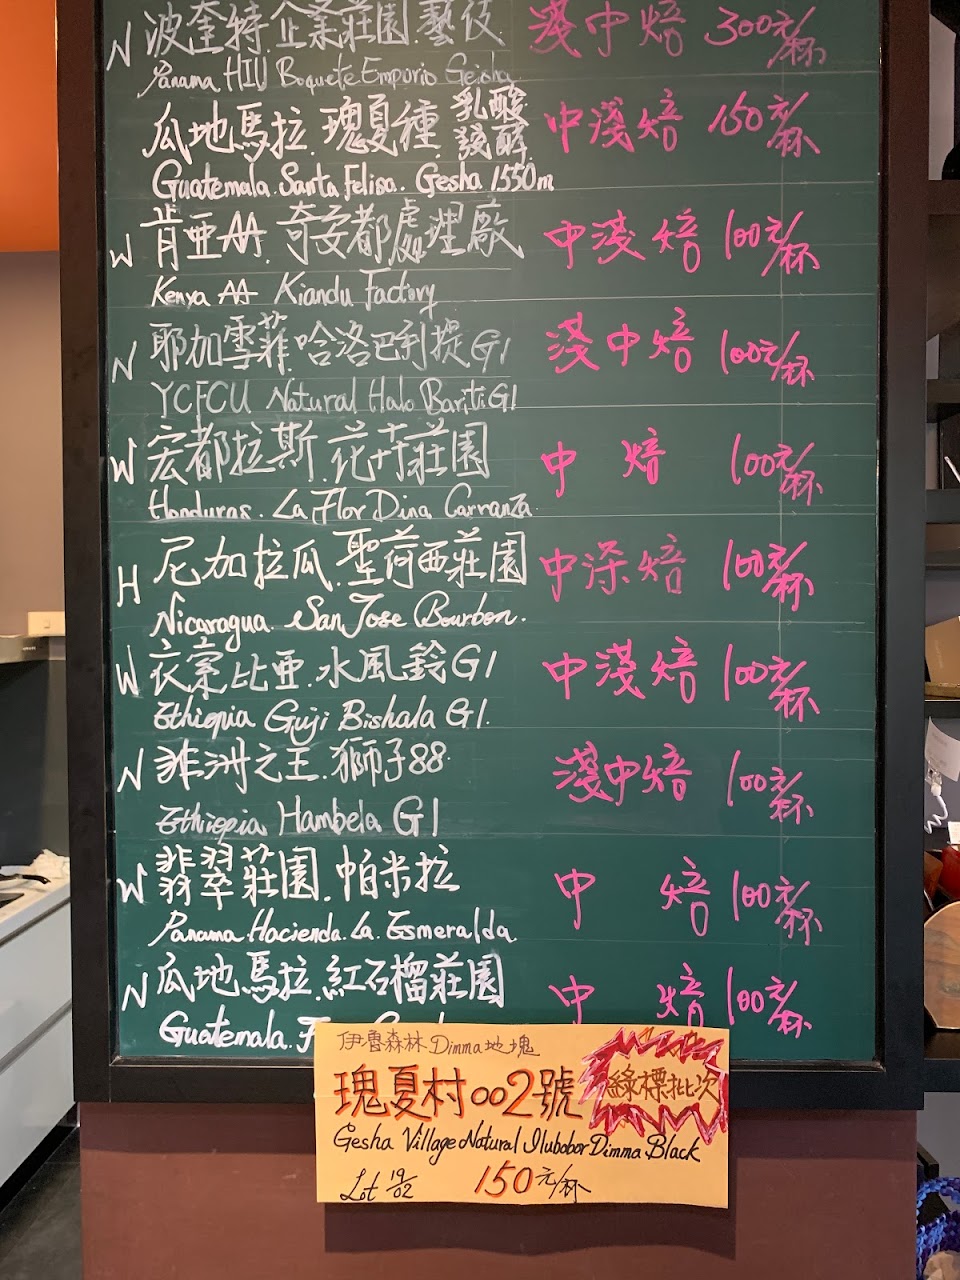 N 波奎特.企業莊園.藝伎 淺中焙 300元/杯
Panama HIU Boquete Emporio Geisha
瓜地馬拉.瑰夏種 乳酸發酵 中淺焙 150元/杯
Guatemala. Santa Felisa. Gesha 1550m
W 肯亞AA.奇安都處理廠 中淺焙 100元/杯
Kenya AA Kiandu Factory
N 耶加雪菲.哈洛巴利提G1 淺中焙 100元/杯
YCFCU Natural Halo Bariti G1
W 宏都拉斯.花卉莊園 中焙 100元/杯
Honduras. La Flor Dina Carranza
H 尼加拉瓜.聖荷西莊園 中深焙 100元/杯
Nicaragua. San Jose Bourbon.
W 衣索比亞.水風鈴G1 中淺焙 100元/杯
Ethiopia Guji Bishala G1.
N 非洲之王.獅子88 淺中焙 100元/杯
Ethiopia Hambela G1
W 翡翠莊園.帕米拉 中焙 100元/杯
Panama. Hacienda. La. Esmeralda
N 瓜地馬拉.紅石榴莊園 中焙 100元/杯
Guatemala.
伊魯森林 Dimma地塊
瑰夏村002號 綠標批次
Gesha Village Natural Ilubabor Dimma Black
Lot 19/02 150元/杯